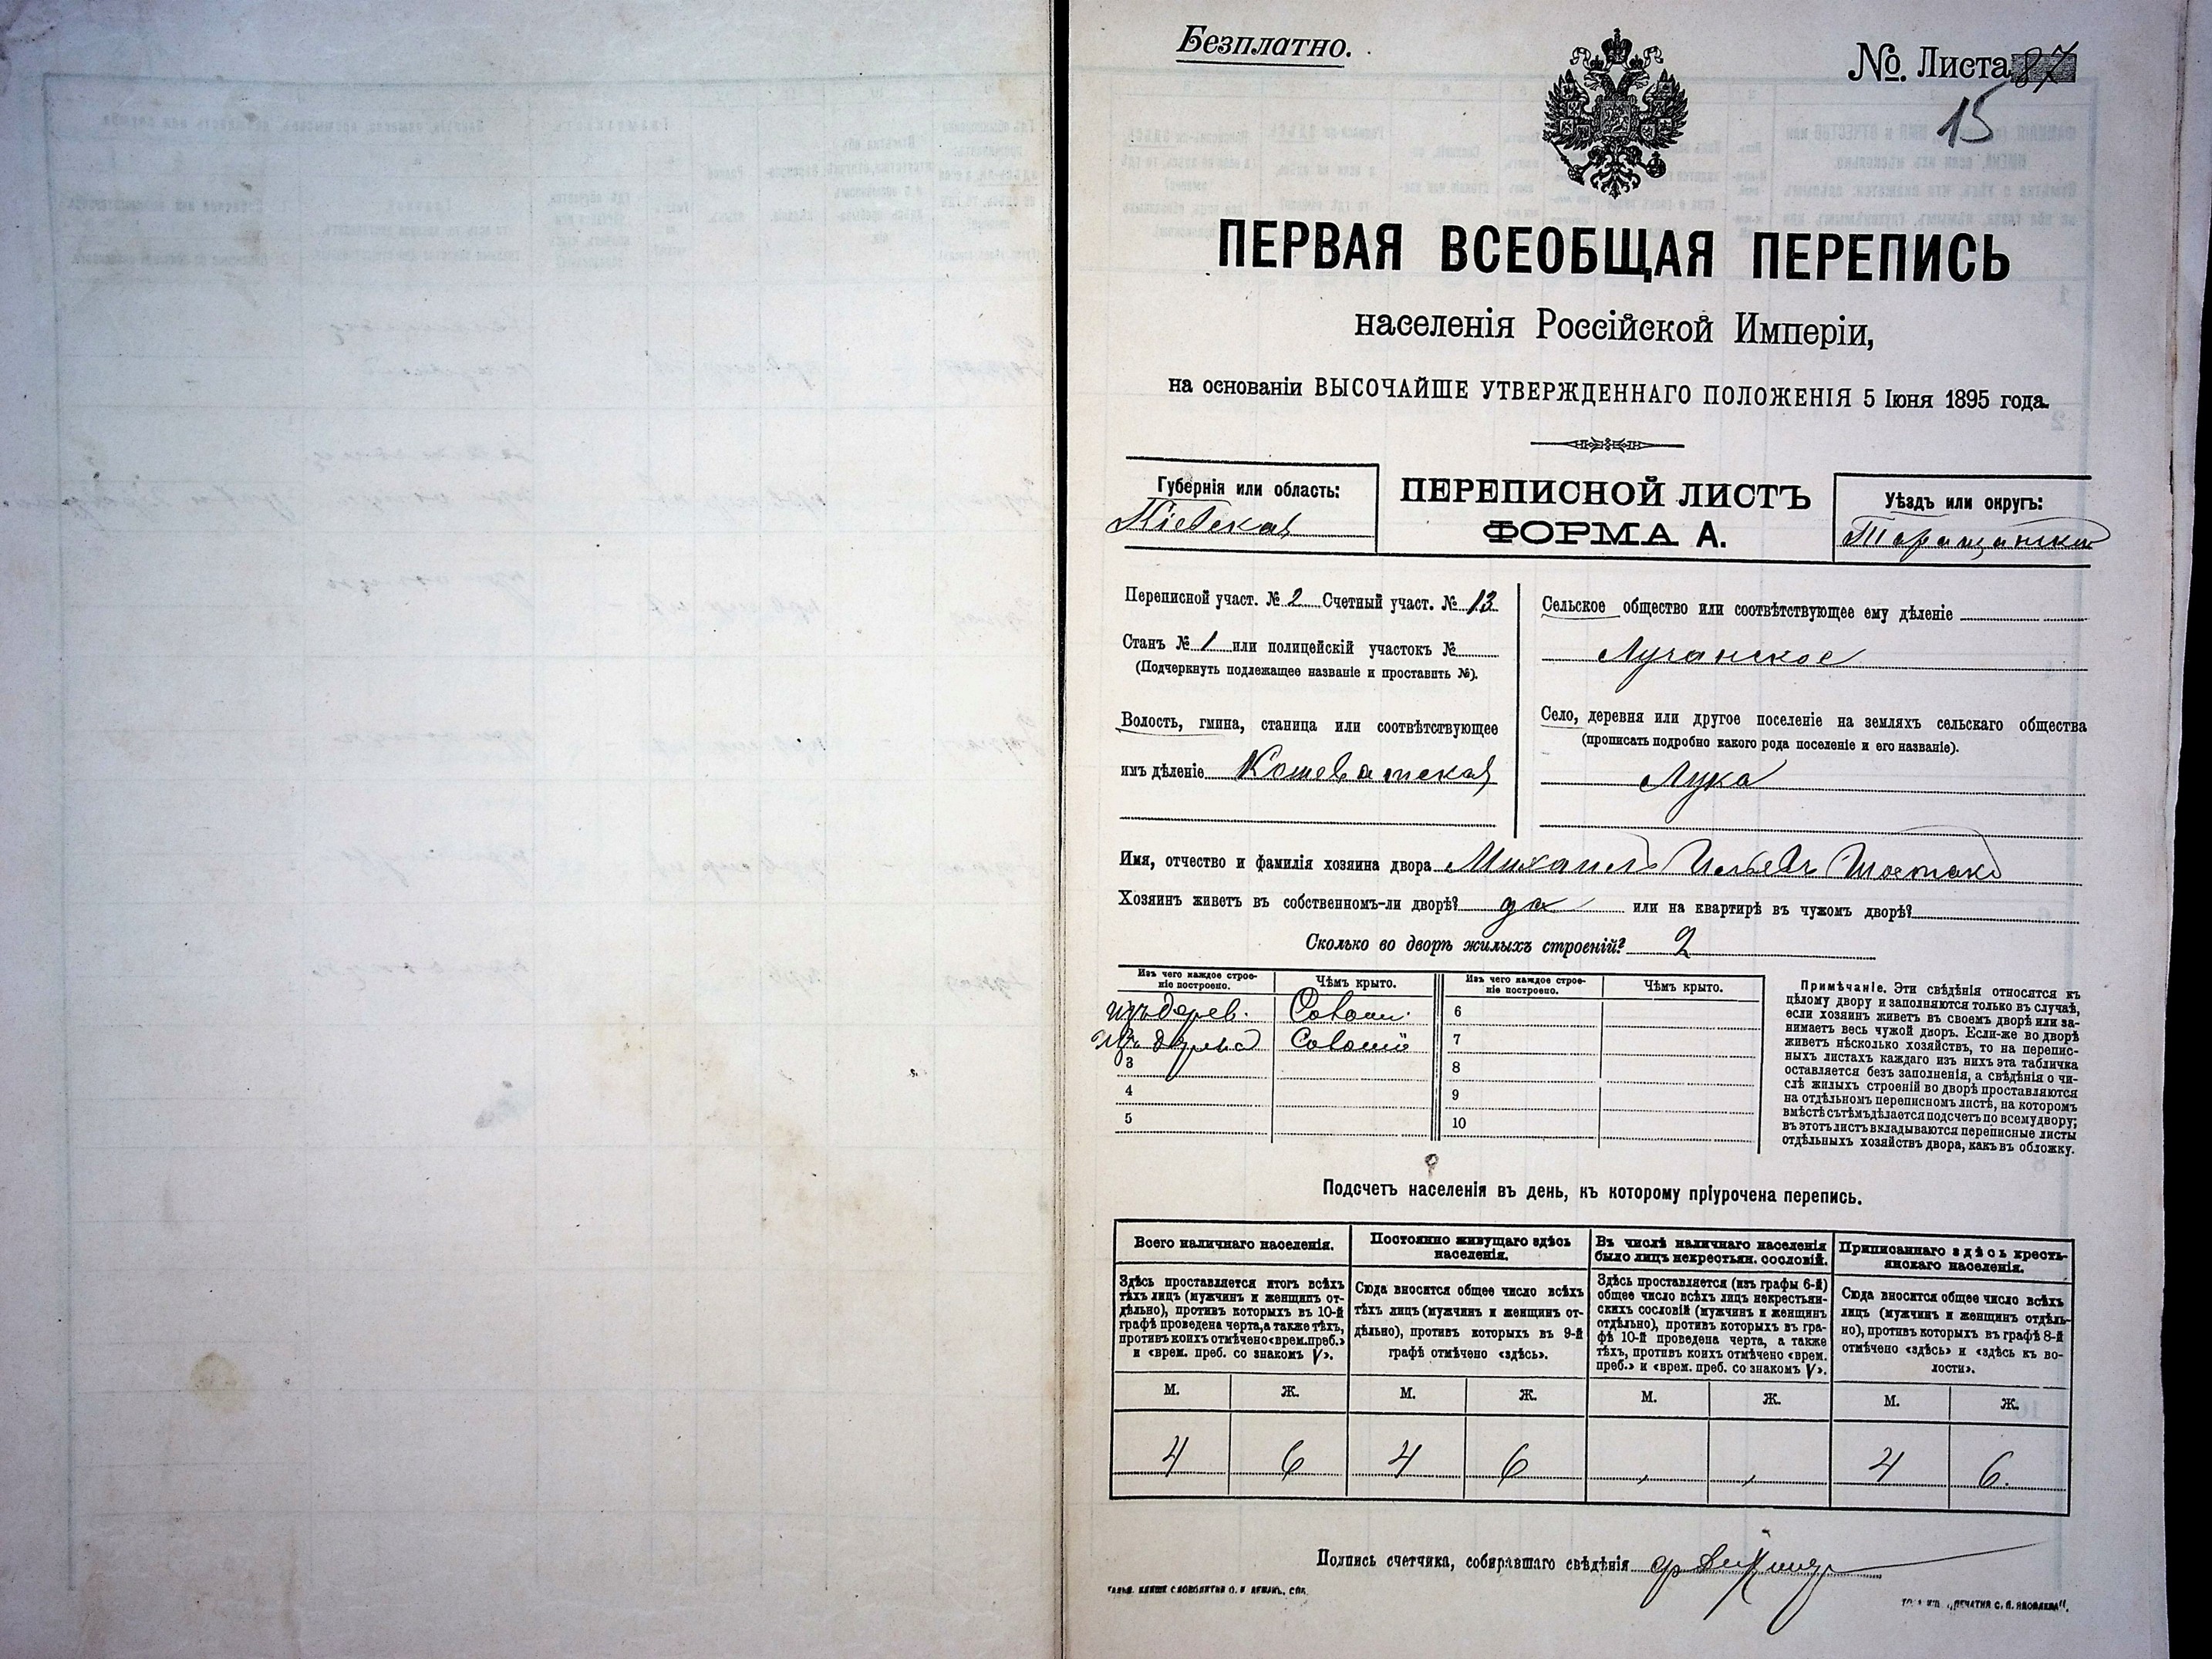 Безплатно.
№. Листа 87
15
ПЕРВАЯ ВСЕОБЩАЯ ПЕРЕПИСЬ
населенія Россійской Имперіи,
на основаніи ВЫСОЧАЙШЕ УТВЕРЖДЕННАГО ПОЛОЖЕНІЯ 5 Іюня 1895 года.
Губернія или область:
Кіевская
ПЕРЕПИСНОЙ ЛИСТЪ
ФОРМА А.
Уѣздъ или округъ:
Таращанскій
Переписной участ. № 2 Счетный участ. № 13
Станъ № 1 или полицейскій участокъ №
(Подчеркнуть подлежащее названіе и проставить №).
Волость, гмина, станица или соотвѣтствующее
имъ дѣленіе Кошеватская
Сельское общество или соотвѣтствующее ему дѣленіе
Лучанское
Село, деревня или другое поселеніе на земляхъ сельскаго общества
(прописать подробно какого рода поселеніе и его названіе).
Лука
Имя, отчество и фамилія хозяина двора Михаилъ Ильевъ Шостакъ
Хозяинъ живетъ въ собственномъ-ли дворѣ? да или на квартирѣ въ чужомъ дворѣ?
Сколько во дворѣ жилыхъ строеній? 2
Изъ чего каждое строе-
ніе построено.
Чѣмъ крыто.
Изъ чего каждое строе-
ніе построено.
Чѣмъ крыто.
изъ дерев. Солом. 6
изъ дерева Соломой 7
3 8
4 9
5 10
Примѣчаніе. Эти свѣдѣнія относятся къ
цѣлому двору и заполняются только въ случаѣ,
если хозяинъ живетъ въ своемъ дворѣ или за-
нимаетъ весь чужой дворъ. Если-же во дворѣ
живетъ нѣсколько хозяйствъ, то на перепис-
ныхъ листахъ каждаго изъ нихъ эта табличка
оставляется безъ заполненія, а свѣдѣнія о чи-
слѣ жилыхъ строеній во дворѣ проставляются
на отдѣльномъ переписномъ листѣ, на которомъ
вмѣстѣ съ тѣмъ дѣлается подсчетъ по всему двору;
въ этотъ листъ вкладываются переписные листы
отдѣльныхъ хозяйствъ двора, какъ въ обложку.
Подсчетъ населенія въ день, къ которому пріурочена перепись.
Всего наличнаго населенія.
Здѣсь проставляется итогъ всѣхъ
тѣхъ лицъ (мужчинъ и женщинъ от-
дѣльно), противъ которыхъ въ 10-й
графѣ проведена черта, а также тѣхъ,
противъ коихъ отмѣчено «врем. преб.»
и «врем. преб. со знакомъ V».
Постоянно живущаго здѣсь
населенія.
Сюда вносится общее число всѣхъ
тѣхъ лицъ (мужчинъ и женщинъ от-
дѣльно), противъ которыхъ въ 9-й
графѣ отмѣчено «здѣсь».
Въ числѣ наличнаго населенія
было лицъ некрестьян. сословій.
Здѣсь проставляется (изъ графы 6-й)
общее число всѣхъ лицъ некрестьян-
скихъ сословій (мужчинъ и женщинъ
отдѣльно), противъ которыхъ въ гра-
фѣ 10-й проведена черта, а также
тѣхъ, противъ коихъ отмѣчено «врем.
преб.» и «врем. преб. со знакомъ V».
Приписаннаго здѣсь кресть-
янскаго населенія.
Сюда вносится общее число всѣхъ
лицъ (мужчинъ и женщинъ отдѣль-
но), противъ которыхъ въ графѣ 8-й
отмѣчено «здѣсь» и «здѣсь къ во-
лости».
М. Ж. М. Ж. М. Ж. М. Ж.
4 6 4 6 4 6.
Подпись счетчика, собиравшаго свѣдѣнія